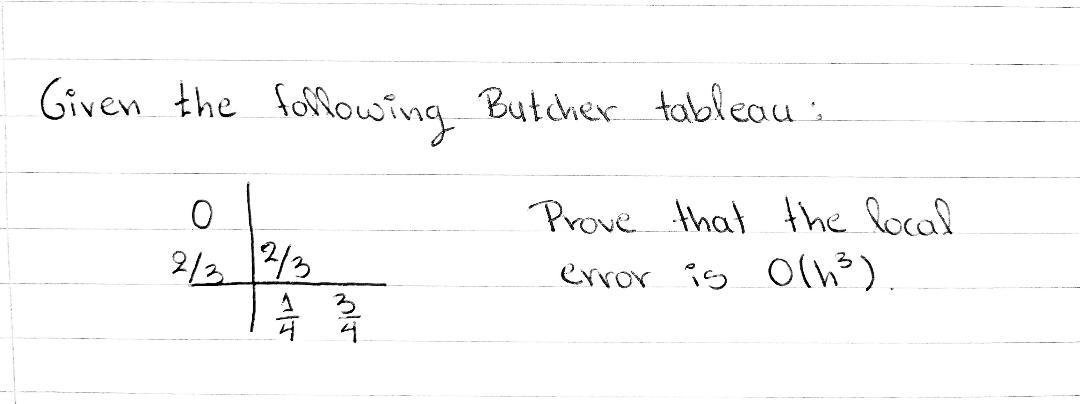 Given the following Butcher tableau:
0
2/3 | 2/3
1/4 3/4
Prove that the local
error is O(h³).